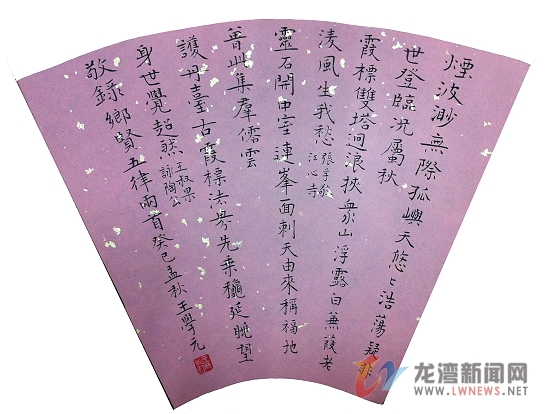 煙波渺無際孤嶼天悠々浩蕩疑非
世登臨況屬秋
霞標雙塔迥浪挾衆山浮露白蒹葭老
淩風生我愁 張孚敬
江心寺
靈石開中室連峯面刺天由來稱福地
曾此集羣僊雲
護丹臺古霞標法界先乘龝延眺望
身世覺超然 王叔果
詠陶公
敬錄鄉賢五律兩首癸巳孟秋王學元
龙湾新闻网
WWW.LWNEWS.NET